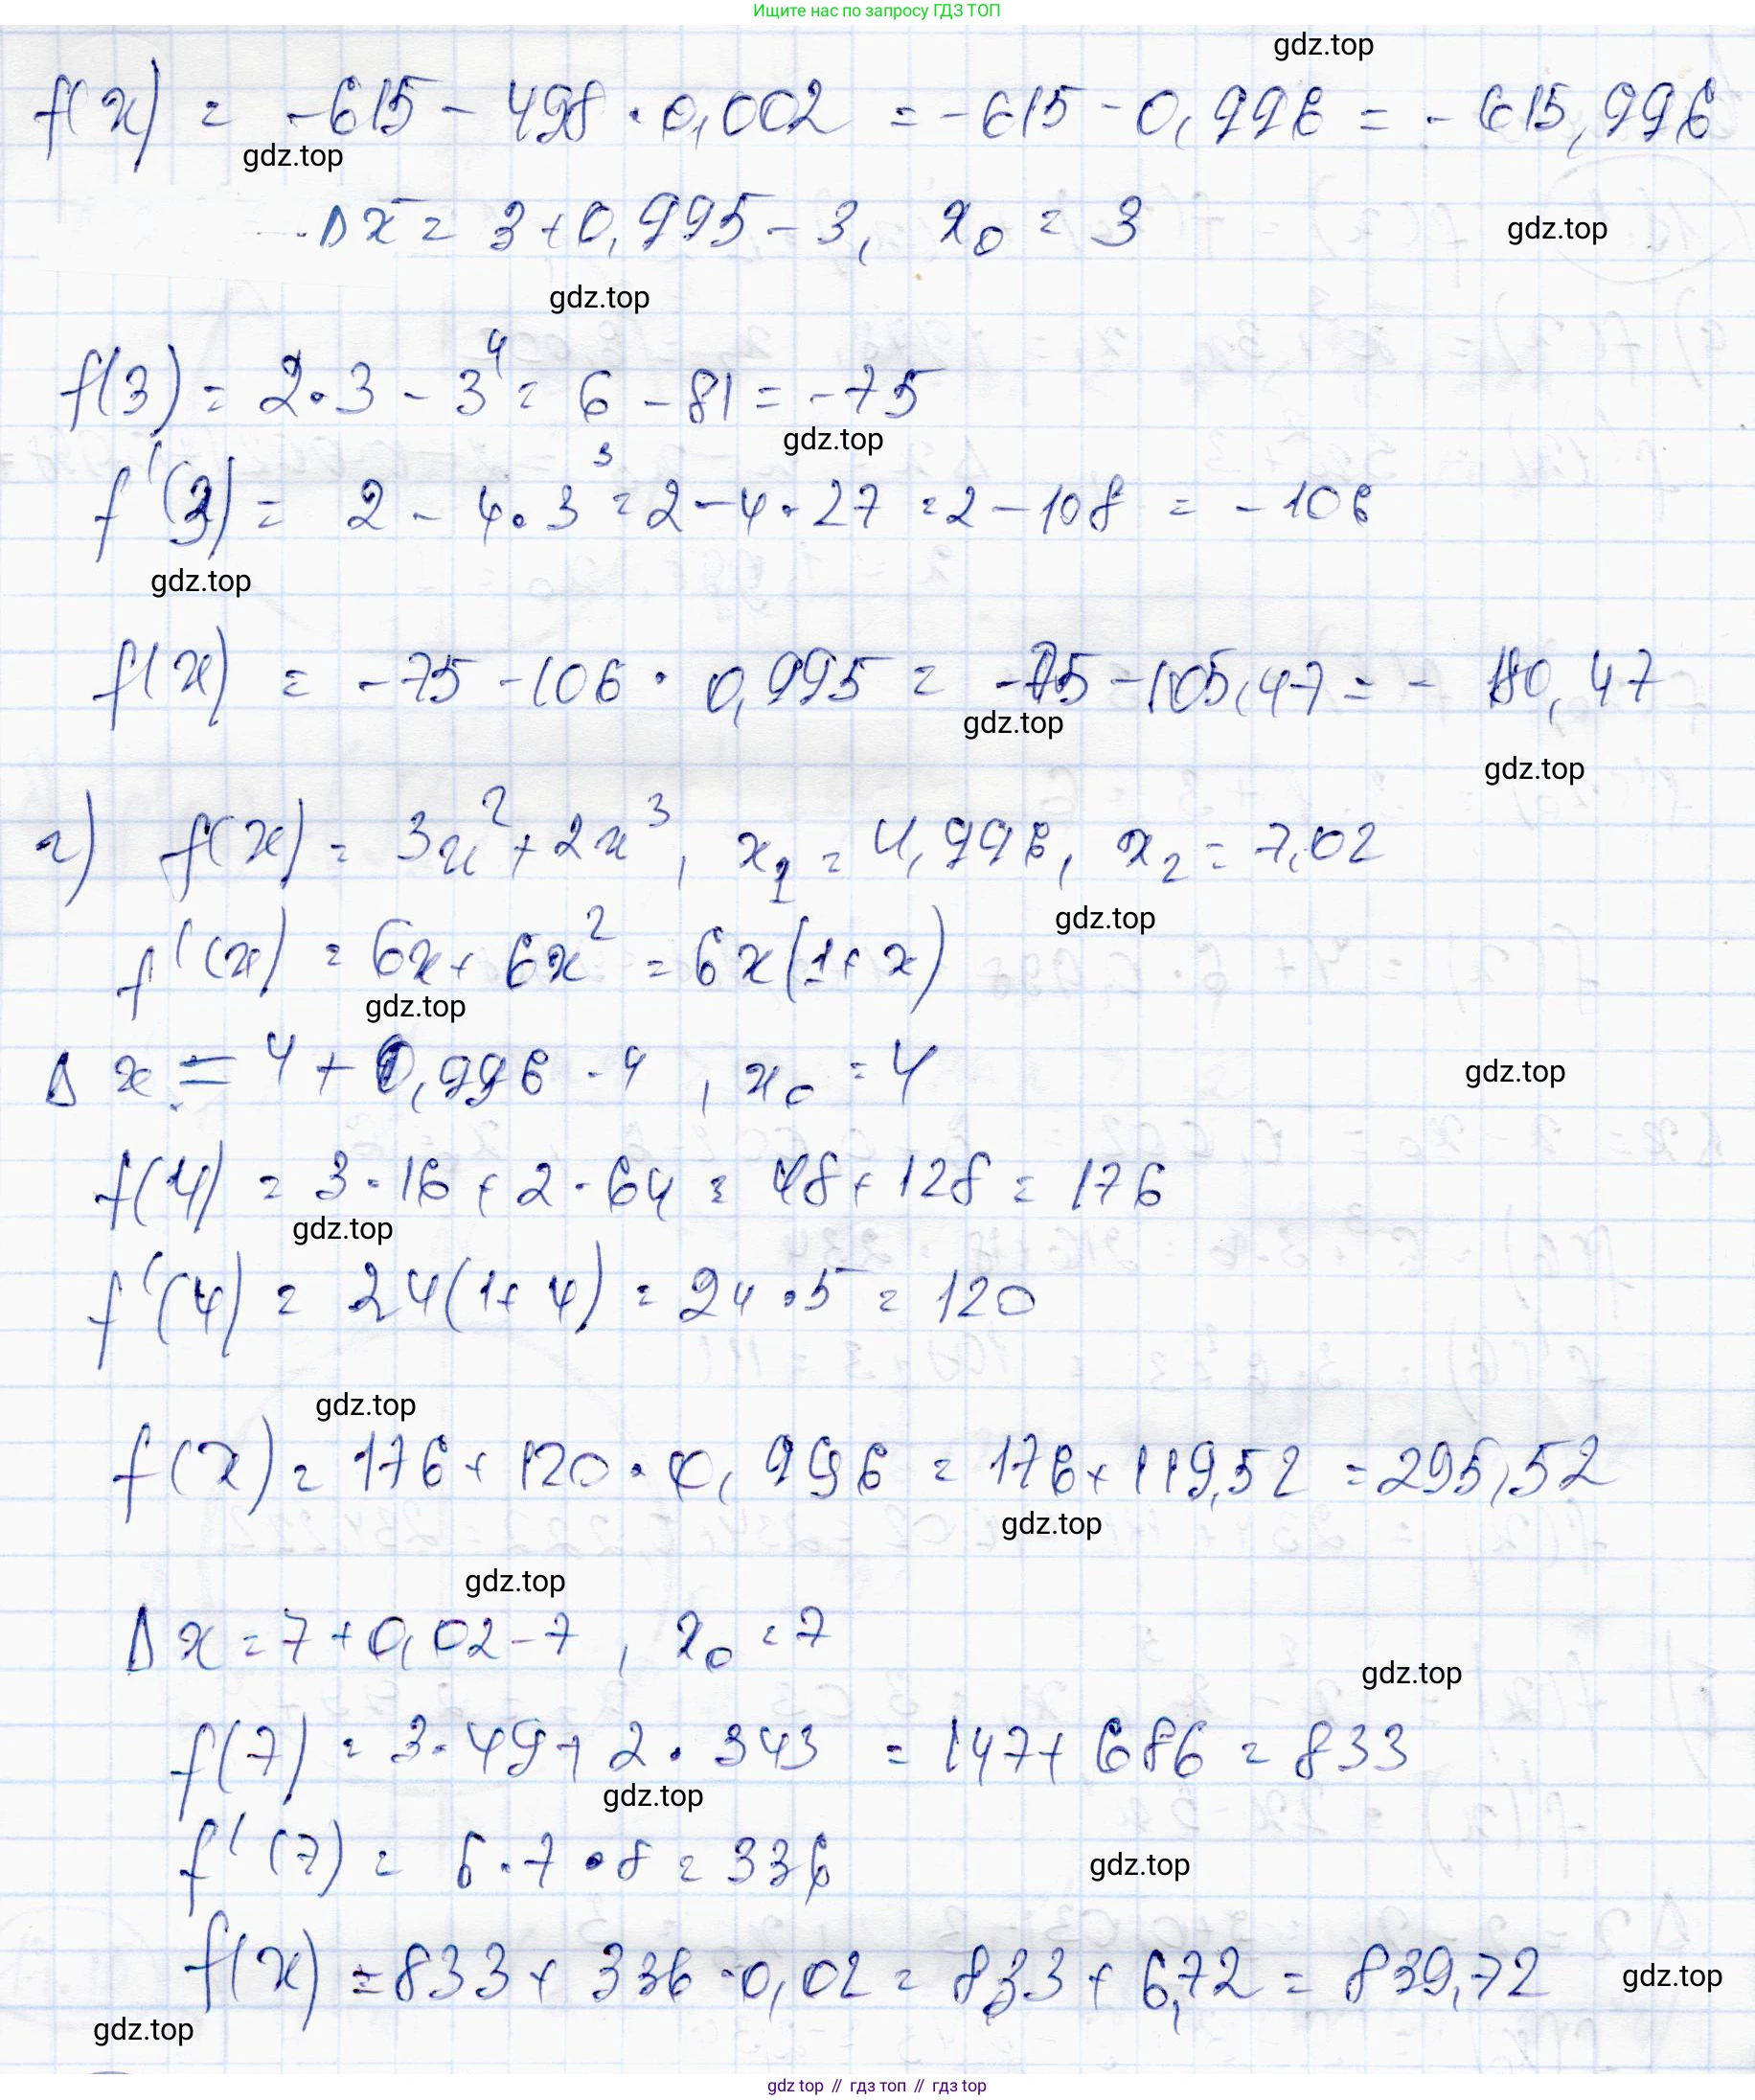 Ищите нас по запросу ГДЗ ТОП
gdz.top
f(x) = -615 - 498 · 0,002 = -615 - 0,996 = -615,996
gdz.top
Δx = 3 + 0,995 - 3, x₀ = 3
gdz.top
gdz.top
f(3) = 2·3 - 3⁴ = 6 - 81 = -75
gdz.top
f'(3) = 2 - 4·3³ = 2 - 4·27 = 2 - 108 = -106
gdz.top
f(x) = -75 - 106 · 0,995 = -75 - 105,47 = - 180,47
gdz.top
gdz.top
г) f(x) = 3x² + 2x³, x₁ = 4,996, x₂ = 7,02
gdz.top
f'(x) = 6x + 6x² = 6x(1 + x)
gdz.top
Δx = 4 + 0,996 - 4, x₀ = 4
gdz.top
f(4) = 3·16 + 2·64 = 48 + 128 = 176
gdz.top
f'(4) = 24(1 + 4) = 24·5 = 120
gdz.top
f(x) = 176 + 120 · 0,996 = 176 + 119,52 = 295,52
gdz.top
gdz.top
Δx = 7 + 0,02 - 7, x₀ = 7
gdz.top
f(7) = 3·49 + 2·343 = 147 + 686 = 833
gdz.top
f'(7) = 6·7·8 = 336
gdz.top
f(x) = 833 + 336·0,02 = 833 + 6,72 = 839,72
gdz.top
gdz.top
gdz top // гдз топ // гдз top